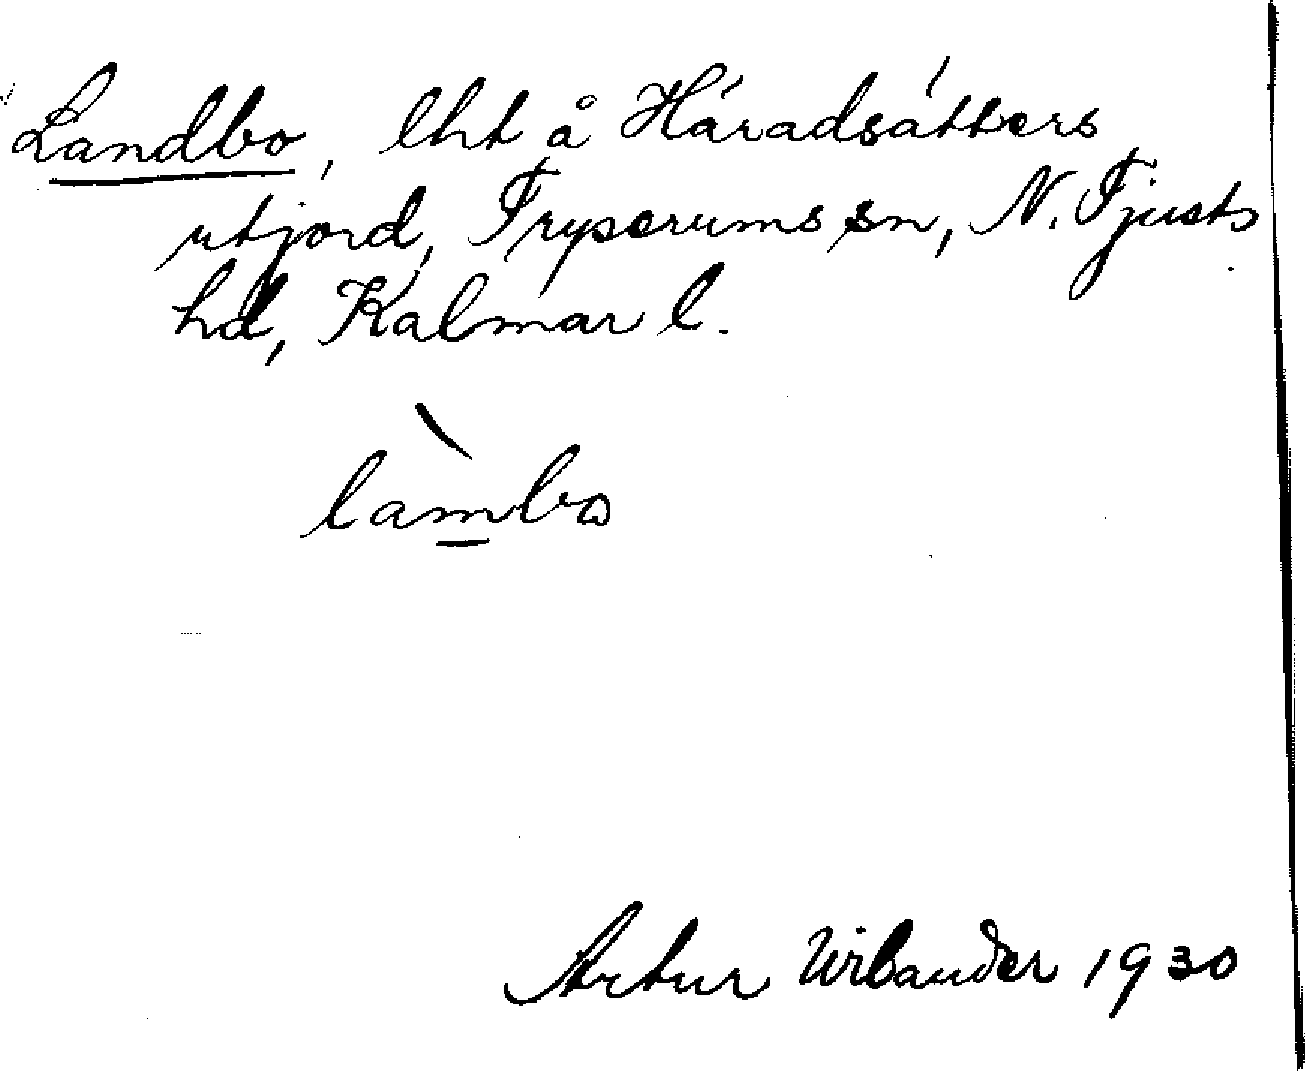 Landbo, lht å Häradsätters
utjord, Tryserums sn, N. Tjusts
hd, Kalmar l.
làmbo
Artur Wilander 1930